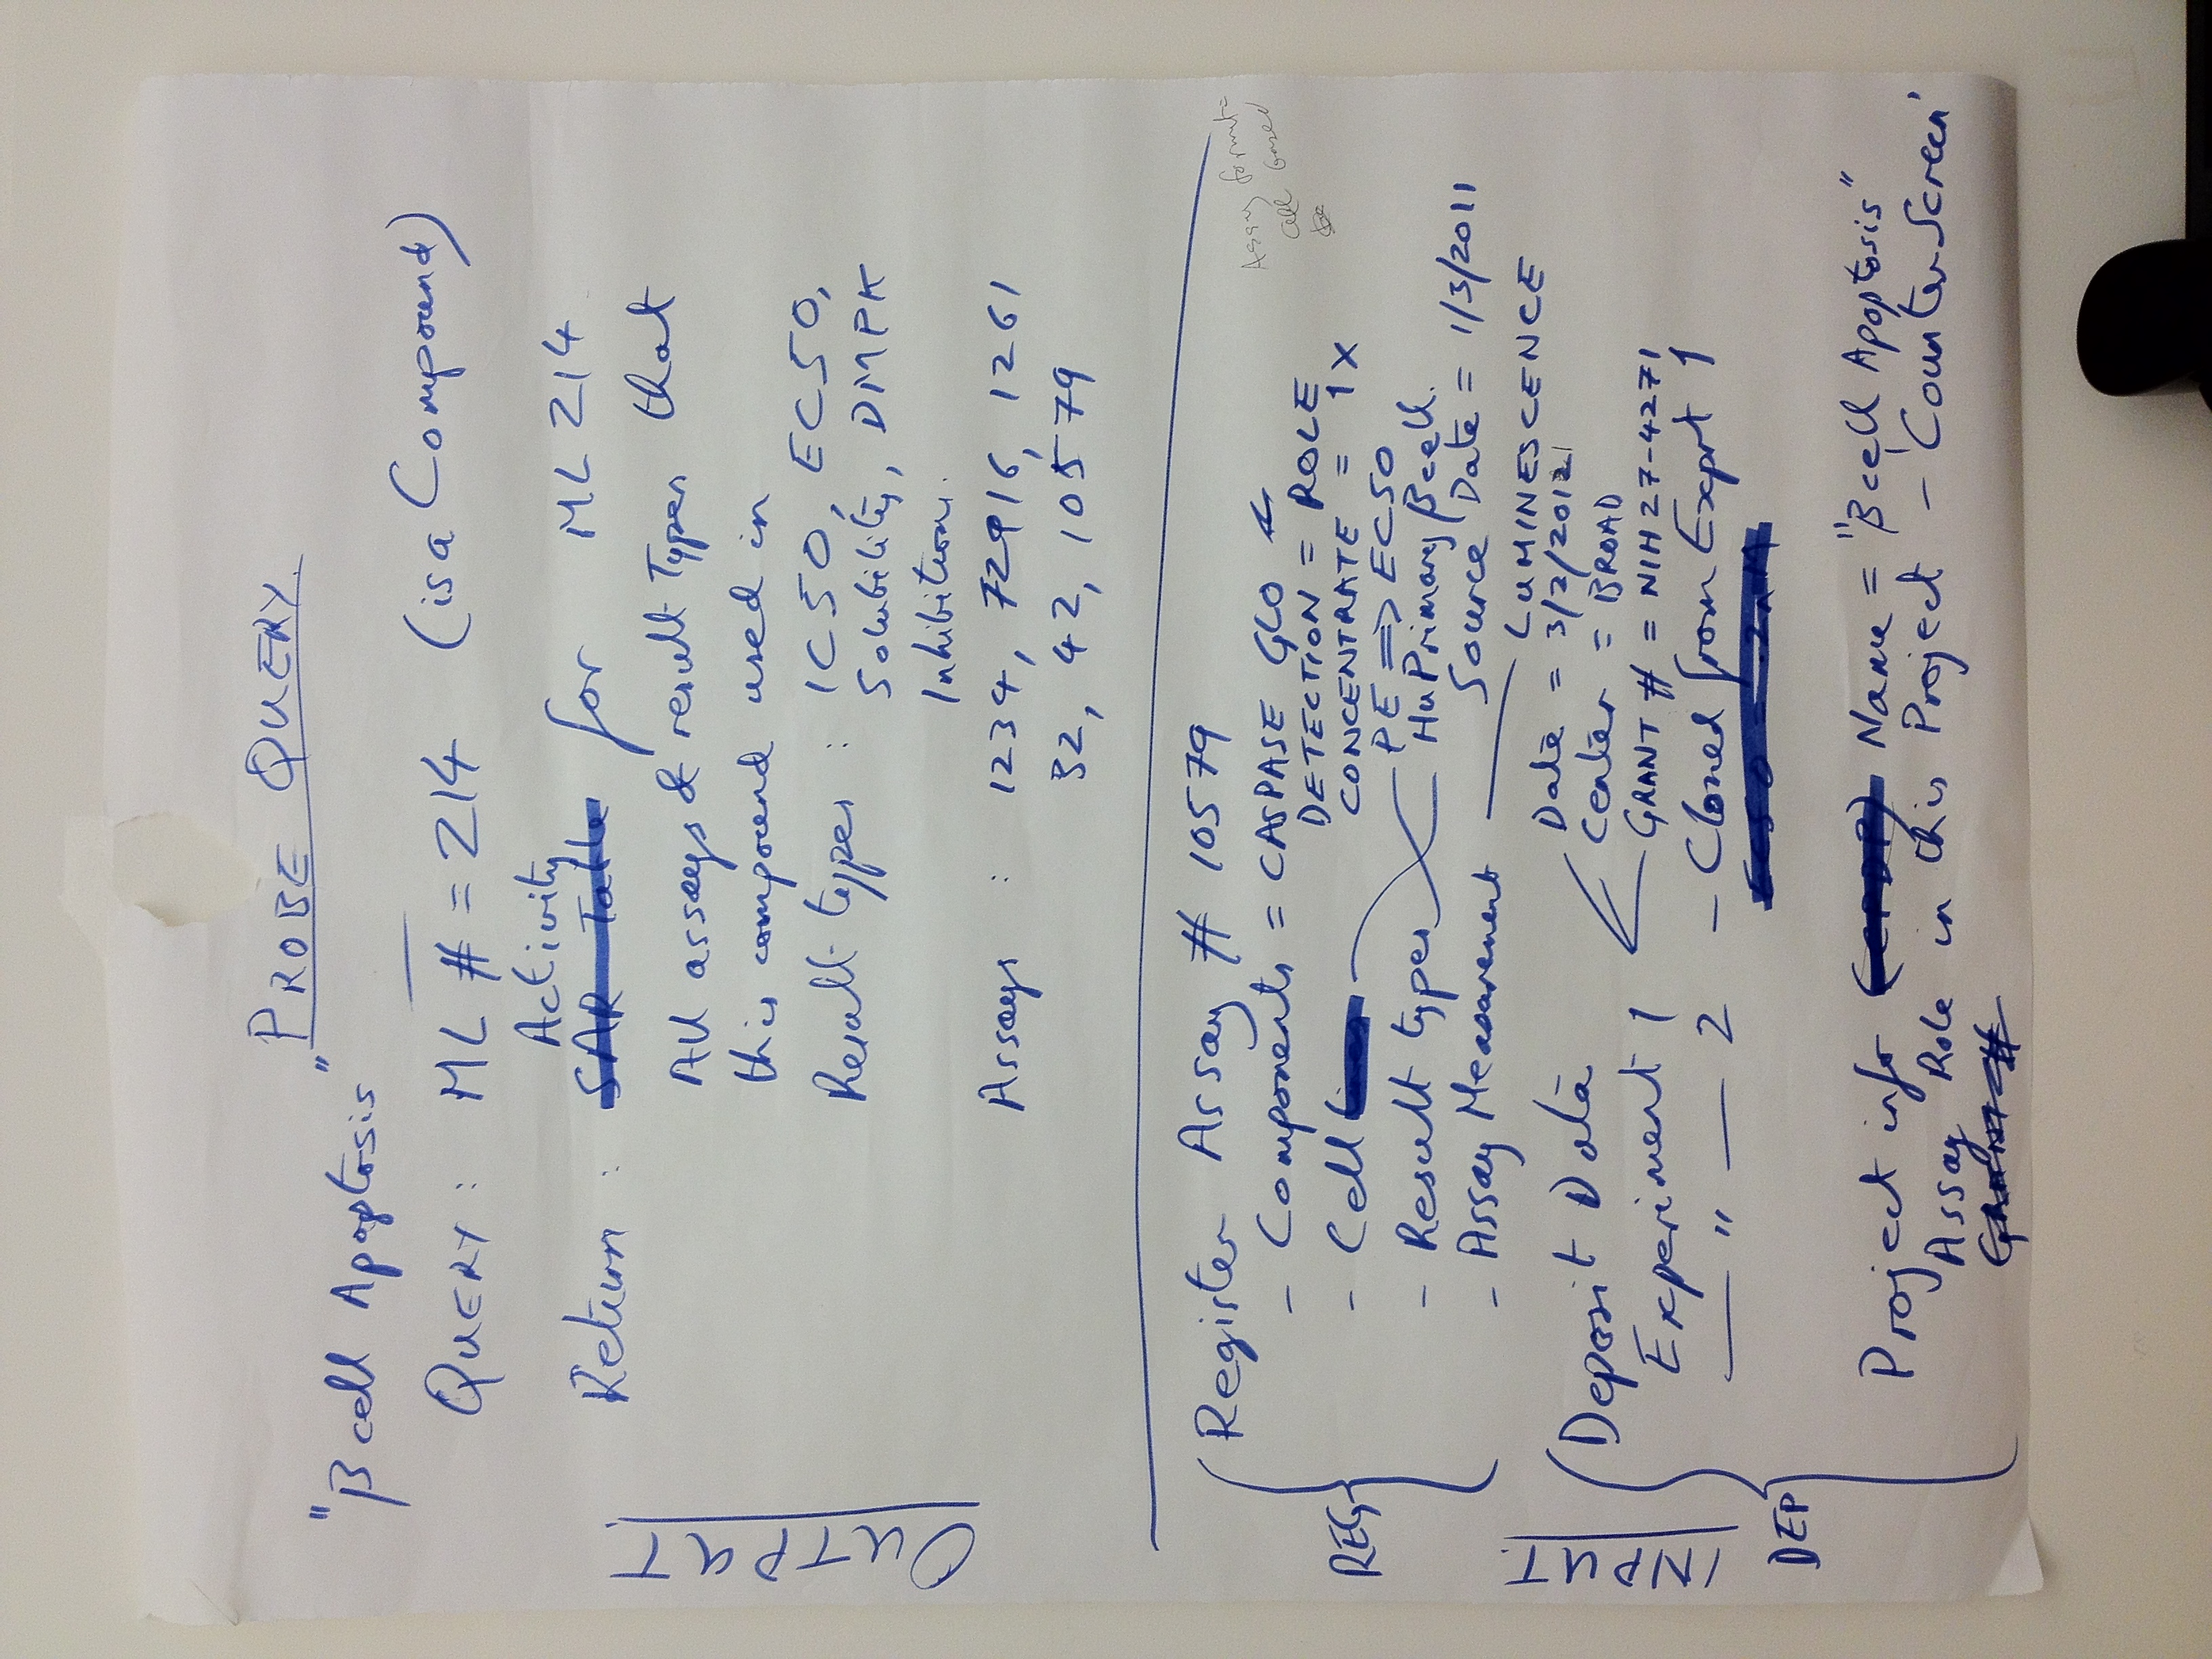 PROBE QUERY.
"β cell Apoptosis"
QUERY : ML # = 214 (is a Compound)
Activity
Return : SAR Table for ML 214
All assays & result Types that
this compound used in
Result types : IC50, EC50,
Solubility, DMPK
Inhibition.
Assays : 1234, 72916, 1261
32, 42, 10579
OUTPUT.
Register Assay # 10579
- Components = CASPASE GLO
DETECTION = ROLE
- Cell
CONCENTRATE = 1X
PE ⇒ EC50
- Result types
Hu Primary β cell.
Source Date = 1/3/2011
- Assay Measurement
LUMINESCENCE
REG
Assay format =
cell based
INPUT.
Deposit Data
Date = 3/2/2012
Center = BROAD
Experiment 1
GRANT # = NIH 27-4271
— " — 2 - Cloned from Exprt 1
EC50 = .2nM
DEP
Project info Name = "β cell Apoptosis"
Assay Role in this Project - 'Counter Screen'
GRANT #